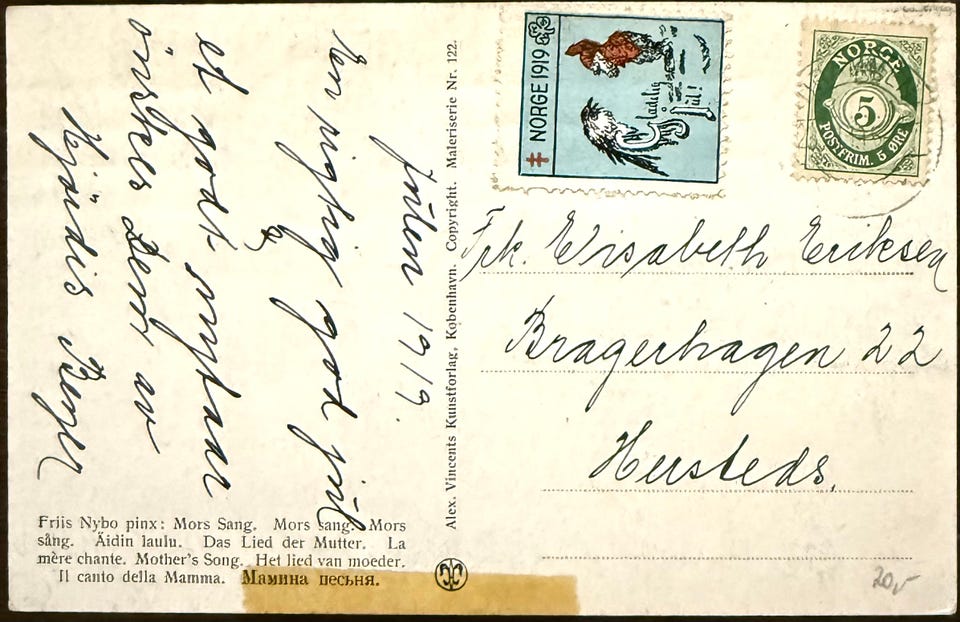 Julen 1919.
En rigtig god jul
og
et godt nytaar
önskes Dem av
Hjördis Berger
Friis Nybo pinx: Mors Sang. Mors sang. Mors
sång. Äidin laulu. Das Lied der Mutter. La
mère chante. Mother's Song. Het lied van moeder.
Il canto della Mamma. Мамина песьня.
Alex. Vincents Kunstforlag, København. Copyright. Maleriserie Nr. 122.
NORGE 1919
Glædelig
Jul!
NORGE
5
POSTFRIM. 5 ØRE
Frk. Elisabeth Eriksen
Bragerhagen 22
20,-